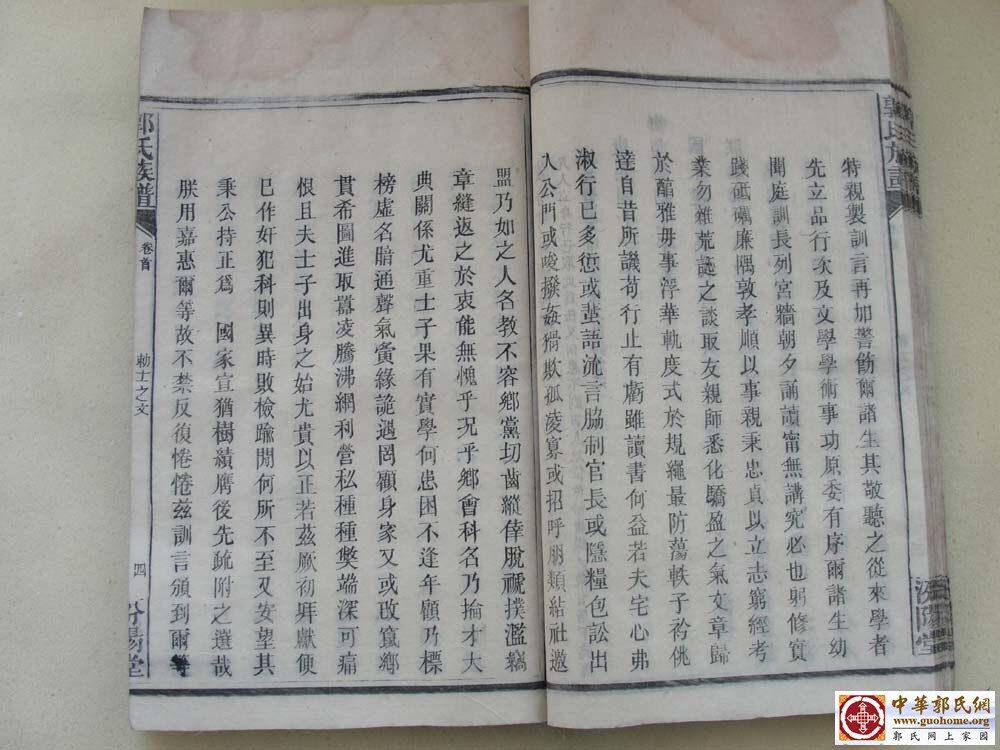 郭氏族譜
汾陽堂
特親製訓言再加警飭爾諸生其敬聽之從來學者
先立品行次及文學學術事功原委有序爾諸生幼
聞庭訓長列宮牆朝夕誦讀甯無講究必也躬修實
踐砥礪廉隅敦孝順以事親秉忠貞以立志窮經考
業勿雜荒誕之談取友親師悉化驕盈之氣文章歸
於醇雅毋事浮華軌度式於規繩最防蕩軼子衿佻
達自昔所譏苟行止有虧雖讀書何益若夫宅心弗
淑行已多愆或蜚語流言脇制官長或隱糧包訟出
入公門或唆撥姦猾欺孤凌寡或招呼朋類結社邀
盟乃如之人名教不容鄉黨切齒縱倖脫褫撲濫竊
章縫返之於衷能無愧乎況乎鄉會科名乃掄才大
典關係尤重士子果有實學何患困不逢年顧乃標
榜虛名暗通聲氣夤緣詭遇罔顧身家又或改竄鄉
貫希圖進取囂凌騰沸網利營私種種獘端深可痛
恨且夫士子出身之始尤貴以正若茲厥初拜獻便
已作奸犯科則異時敗檢踰閑何所不至又安望其
秉公持正爲 國家宣猶樹績膺後先疏附之選哉
朕用嘉惠爾等故不禁反復惓惓茲訓言頒到爾等
郭氏族譜
卷首
勅士之文
四
汾陽堂
中華郭氏網
www.guohome.org
郭氏网上家园